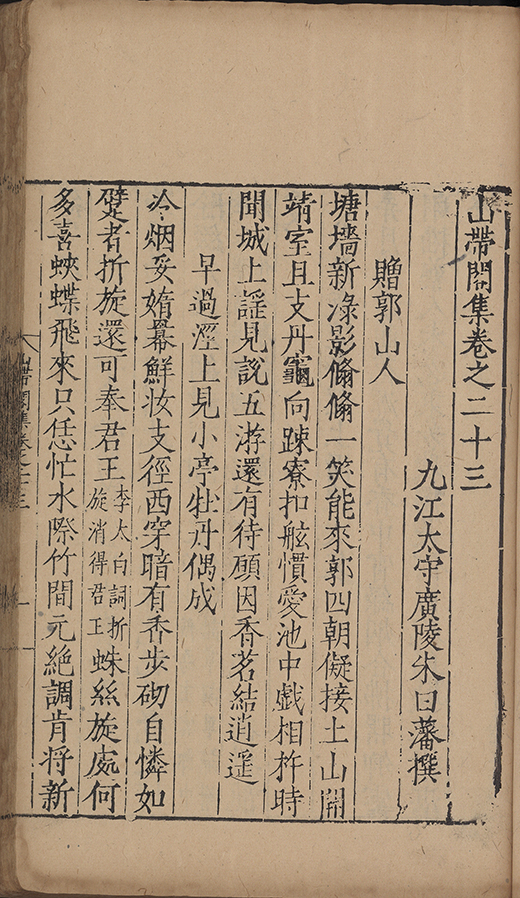 山帶閣集卷之二十三
九江太守廣陵朱曰藩撰
贈郭山人
塘墻新淥影翛翛一笑能來郭四朝儗接土山開
靖室且支丹竈向踈寮扣舷慣愛池中戯相杵時
聞城上謡見說五游還有待願因香茗結逍遥
早過溼上見小亭牡丹偶成
冷烟妥媠冪鮮妆支徑西穿暗有香步砌自憐如
躄者折旋還可奉君王李太白詞折旋消得君王蛛絲旋處何
多喜蛺蝶飛來只恁忙水際竹間元絶調肯将新
山帶閣集卷之二十三
一